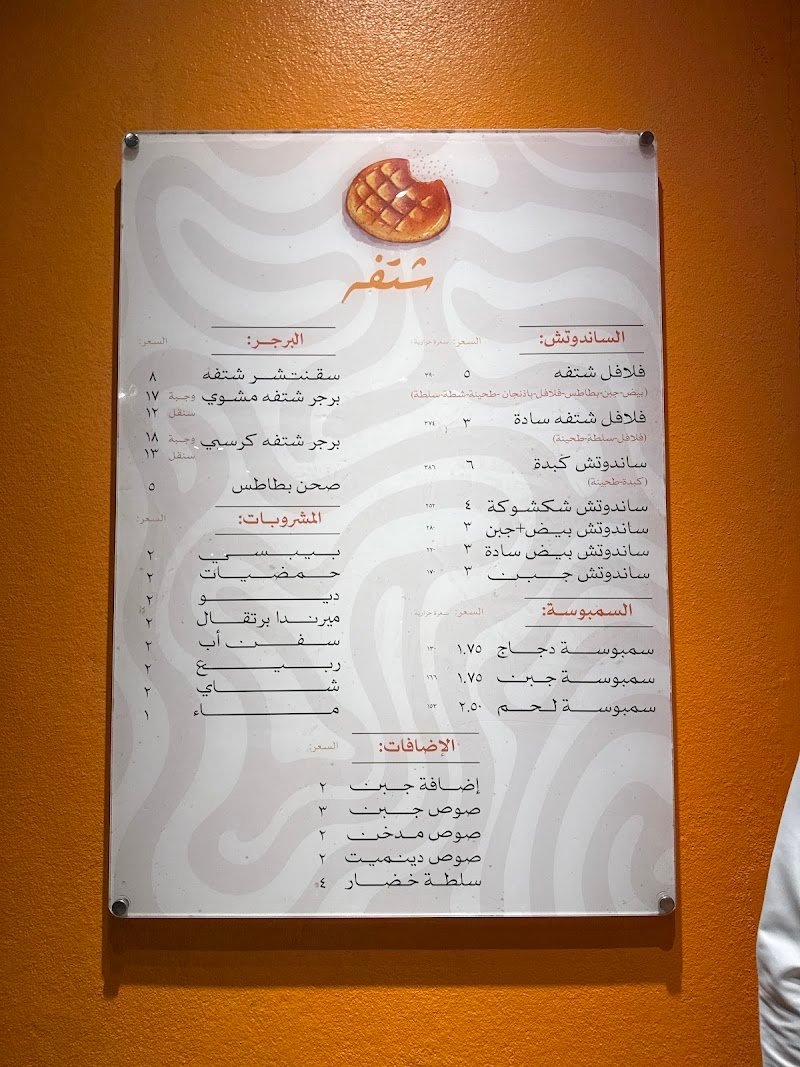 شتفه
الساندوتش: السعر: سعرة حرارية:
فلافل شتفه ٥ ٣٨٠
(بيض-جبن-بطاطس-فلافل-باذنجان-طحينة-شطة-سلطة)
فلافل شتفه سادة ٣ ٣٧٤
(فلافل-سلطة-طحينة)
ساندوتش كبدة ٦ ٣٨٦
(كبدة-طحينة)
ساندوتش شكشوكة ٤ ٢٥٢
ساندوتش بيض+جبن ٣ ٢٨٠
ساندوتش بيض سادة ٣ ٢٢٠
ساندوتش جبن ٣ ١٧٠
السمبوسة: السعر: سعرة حرارية:
سمبوسة دجاج ١.٧٥ ١٣٠
سمبوسة جبن ١.٧٥ ١٦٦
سمبوسة لحم ٢.٥٠ ١٥٢
البرجر: السعر:
سقنتشر شتفه ٨
برجر شتفه مشوي وجبة ١٧
سنقل ١٢
برجر شتفه كرسبي وجبة ١٨
سنقل ١٣
صحن بطاطس ٥
المشروبات: السعر:
بيبسي ٢
حمضيات ٢
ديو ٢
ميرندا برتقال ٢
سفن أب ٢
ربيع ٢
شاي ٢
ماء ١
الإضافات: السعر:
إضافة جبن ٢
صوص جبن ٣
صوص مدخن ٢
صوص دينميت ٢
سلطة خضار ٤